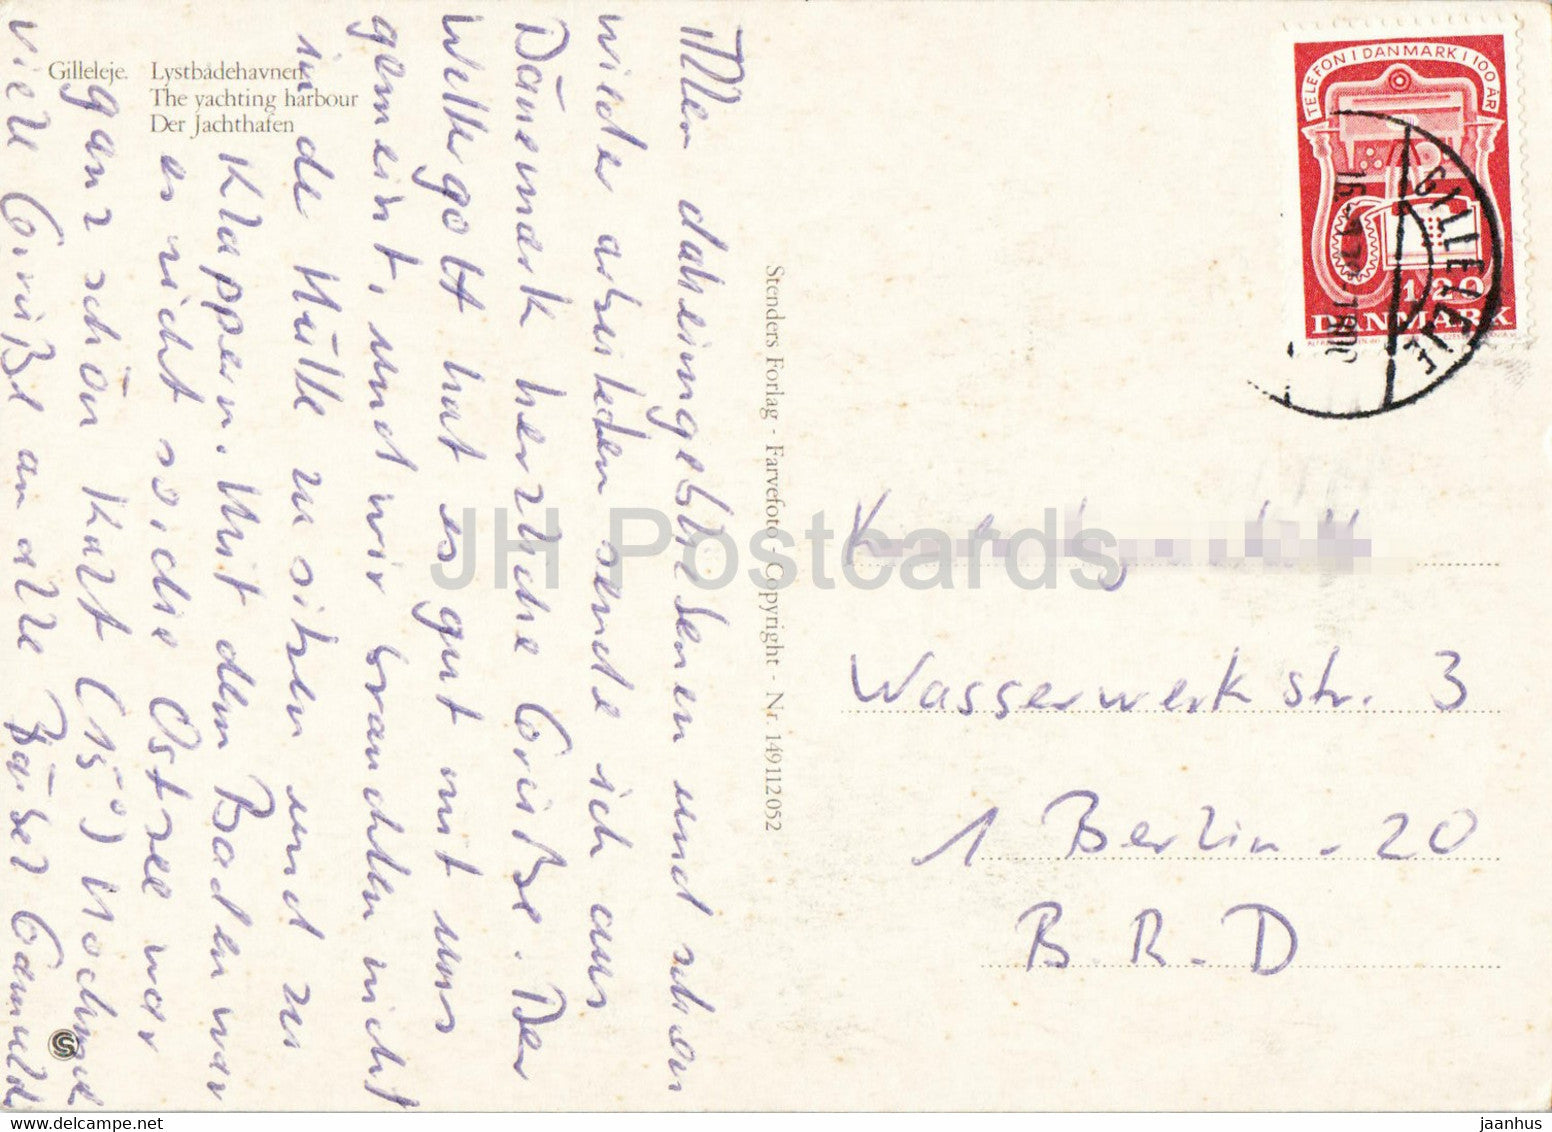 Gilleleje. Lystbådehavnen
The yachting harbour
Der Jachthafen
Allen daheimgebliebenen und schon
wieder arbeitenden sende ich aus
Dänemark herzliche Grüße. Der
Wettergott hat es gut mit uns
gemeint, und wir brauchten nicht
in de Hütte zu sitzen und zu
klappern. Mit dem Baden war
es nicht so, die Ostsee war
ganz schön kalt (15°) Nochmal
viele Grüße an alle
Stenders Forlag - Farvefoto - Copyright - Nr. 149112052
TELEFON I DANMARK I 100 ÅR
120
DANMARK
GILLELEJE
Wasserwerkstr. 3
1 Berlin - 20
B.R.D
JH Postcards
jaanhus
delcampe.net